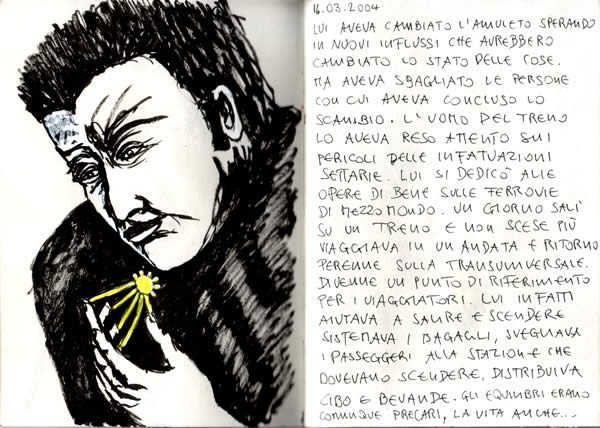 16.03.2004
LUI AVEVA CAMBIATO L'AMULETO SPERANDO
IN NUOVI INFLUSSI CHE AVREBBERO
CAMBIATO LO STATO DELLE COSE.
MA AVEVA SBAGLIATO LE PERSONE
CON CUI AVEVA CONCLUSO LO
SCAMBIO. L'UOMO DEL TRENO
LO AVEVA RESO ATTENTO SUI
PERICOLI DELLE INFATUAZIONI
SETTARIE. LUI SI DEDICÒ ALLE
OPERE DI BENE SULLE FERROVIE
DI MEZZO MONDO. UN GIORNO SALÌ
SU UN TRENO E NON SCESE PIÙ
VIAGGIAVA IN UN ANDATA E RITORNO
PERENNE SULLA TRANSUNIVERSALE.
DIVENNE UN PUNTO DI RIFERIMENTO
PER I VIAGGIATORI. LUI INFATTI
AIUTAVA A SALIRE E SCENDERE
SISTEMAVA I BAGAGLI, SVEGLIAVA
I PASSEGGERI ALLA STAZIONE CHE
DOVEVANO SCENDERE, DISTRIBUIVA
CIBO E BEVANDE. GLI EQUILIBRI ERANO
COMUNQUE PRECARI, LA VITA ANCHE...